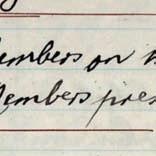 Members on
Members pres